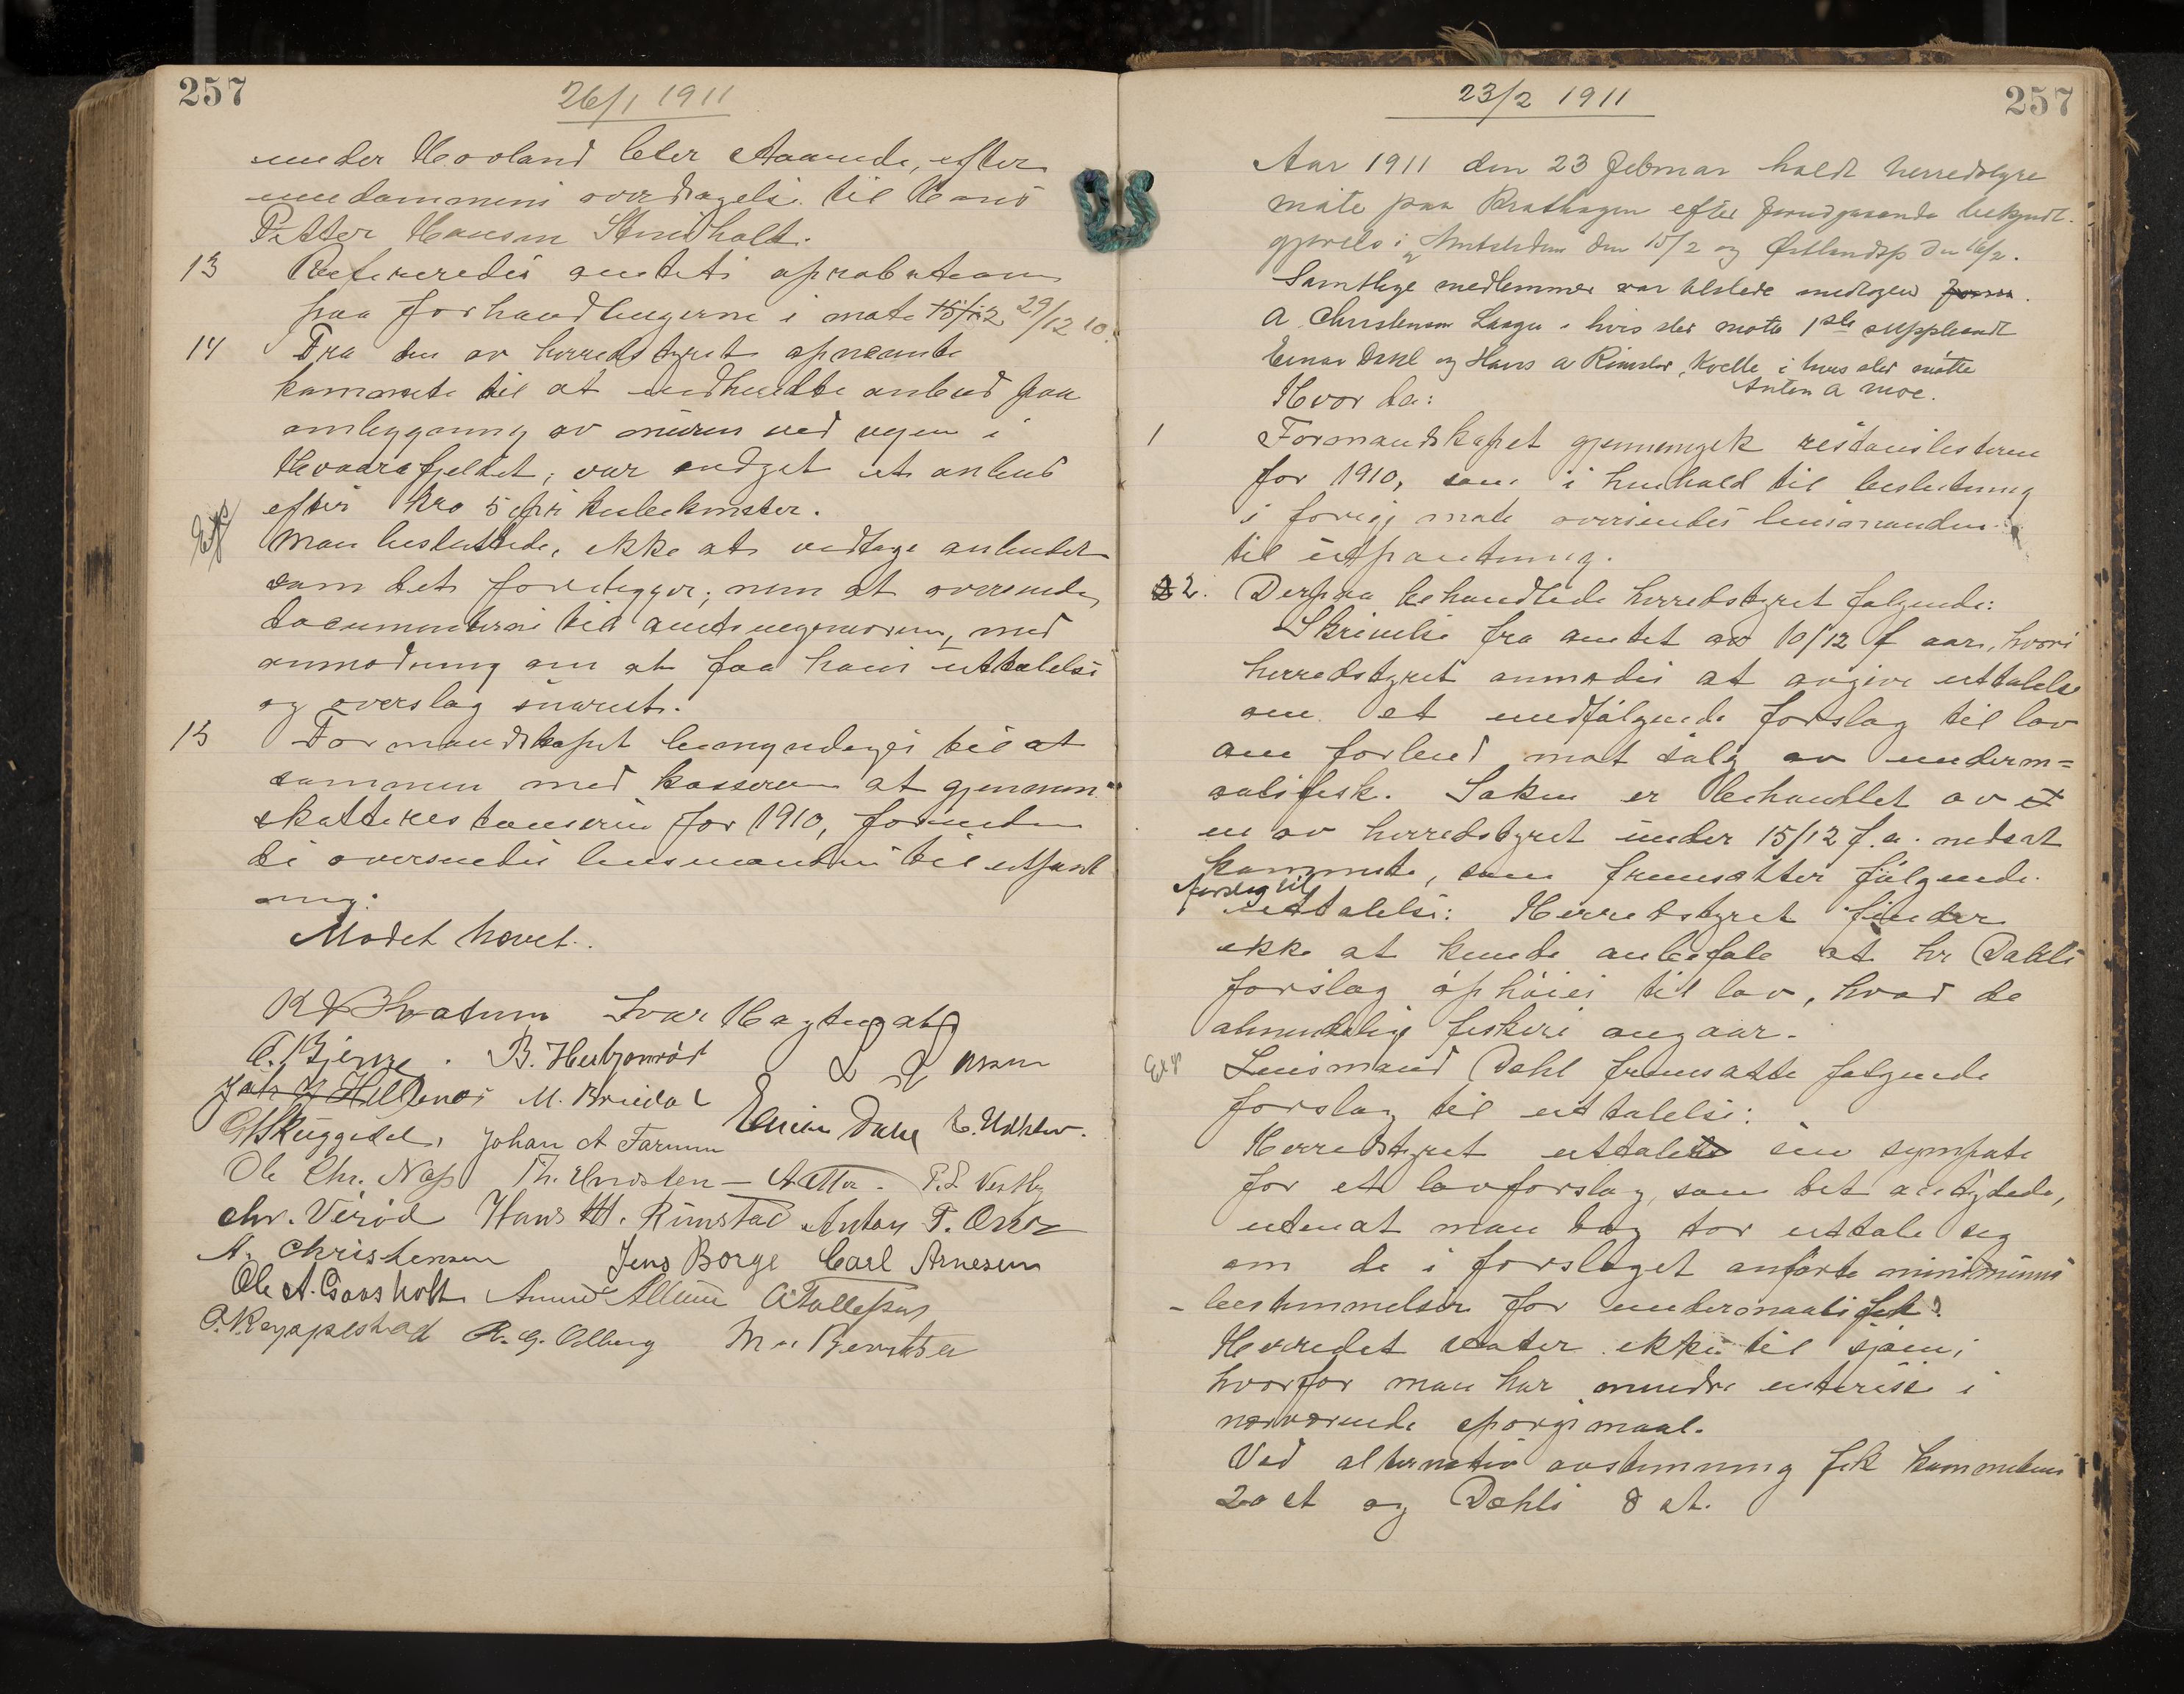 257
26/1 1911
under Hooland eller Aarnde, efter
eiendommens overdragelse til Hans
Petter Hansen Stensholt.
13 Refereredes amtets aprobation
paa forhandlingerne i møte 15/12 29/12 10.
14 Fra den av herredstyret opnævnte
kommite til at indhendte anbud paa
omlægning av muren ved vegen i
Hvaarafjeldet, var indgit et anbud
efter Kro 5 pr kubikmeter.
Exp Man besluttede, ikke at vedtage anbudet
som det foreligger, men at oversende
documenterne til amtsingeniøren, med
anmodning om at faa hans uttalelse
og overslag snarest.
15 Formandskapet bemyndiges til at
sammen med kasseren at gjennem-
skatterestanserne for 1910, forinden
de oversendes lensmanden til utpant
ning.
Mødet hævet.
Ivar Hagtingat
C. Bjerge. B. Hertzenrød
Joh H Hillenes M. Bredal
G Skuggedal, Johan A Farmen Einar Dahl
Ole Chr. Næss Th. Knudsen P. L. Vestby
Chr. Verød Hans M. Rimstad Anton T.
A. Christensen Jens Borge Carl Arnesen
Ole A. Gaasholt A Tollefsen
R. G. Odberg
257
23/2 1911
Aar 1911 den 23 Februar holdt herredstyre
møte paa Brathagen efter forudgaaende bekjendt-
gjørelse i Amtstidene den 15/2 og Østlandsp den 16/2.
Samtlige medlemmer var tilstede undtagen
A. Christensen Laagen i hvis sted møtte 1ste suppleandt
Einar Dahl og Hans A Rimstad, Kvelle i hvis sted møtte
Anton A Moe.
Hvor da:
1 Formandskapet gjennemgik restanslisterne
for 1910, som i henhold til beslutning
i forrige møte oversendes lensmanden
til utpantning.
2. Derpaa behandlede herredstyret følgende:
Skrivelse fra amtet av 10/12 f aar, hvori
herredstyret anmodes at avgive uttalelse
om et medfølgende forslag til lov
om forbud mot salg av underm=
aalsfisk. Saken er behandlet av et
en av herredstyret under 15/12 f.a. nedsat
kommite, som fremsætter følgende
forslag til
uttalelse: Herredstyret finder
ikke at kunde anbefale at hr Dahls
forslag ophøies til lov, hvad de
almindelige fiskeri angaar.
Exp Lensmand Dahl fremsatte følgende
forslag til uttalelse:
Herredstyret uttaler sin sympati
for et lovforslag, som det antydede,
uten at man dog tør uttale sig
om de i forslaget anførte minimums
- bestemmelser for undermaalsfisk.
Herredet støter ikke til sjøen,
hvorfor man har mindre interesse i
nærværende spørgsmaal.
Ved alternativ avstemning fik kommiteens
20 st og Dahls 8 st.